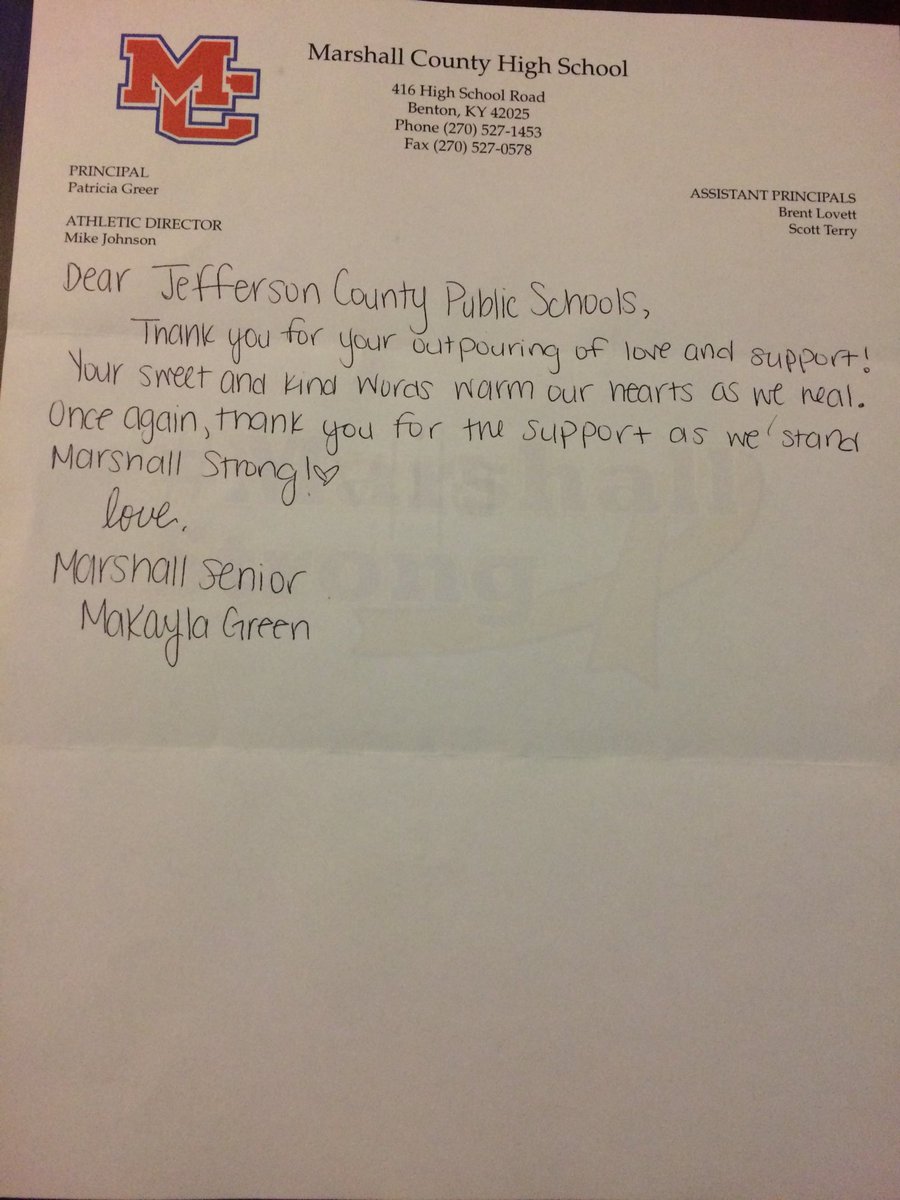 MC
Marshall County High School
416 High School Road
Benton, KY 42025
Phone (270) 527-1453
Fax (270) 527-0578
PRINCIPAL
Patricia Greer
ATHLETIC DIRECTOR
Mike Johnson
ASSISTANT PRINCIPALS
Brent Lovett
Scott Terry
Dear Jefferson County Public Schools,
Thank you for your outpouring of love and support!
Your sweet and kind words warm our hearts as we heal.
Once again, thank you for the support as we stand
Marshall Strong!♡
love,
Marshall Senior
Makayla Green
Marshall
Strong